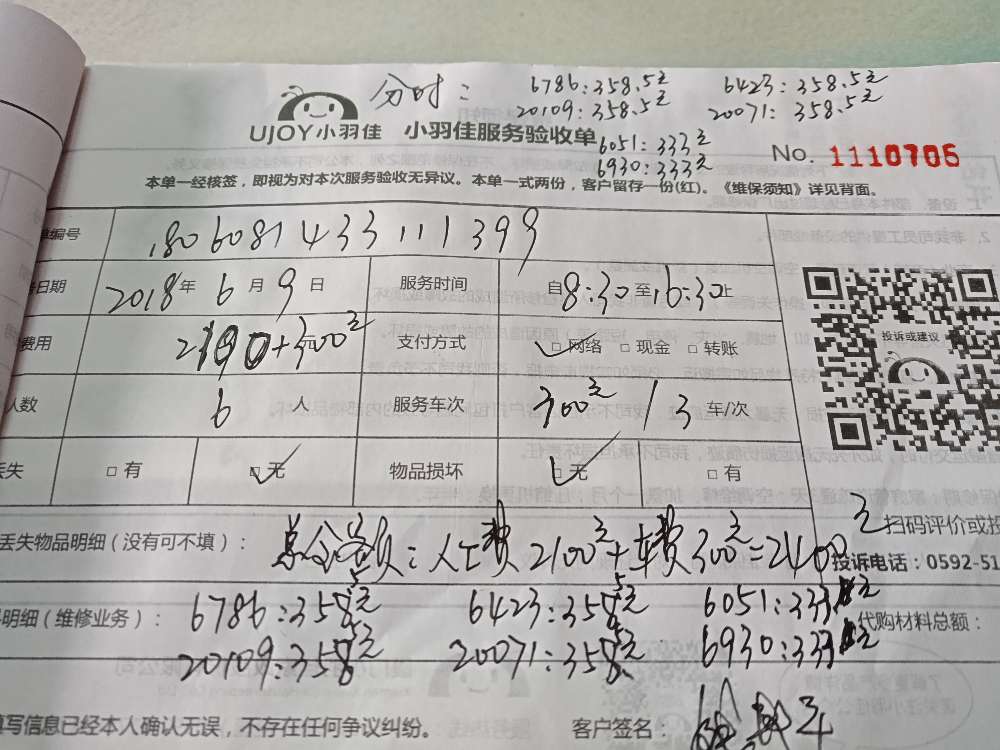 分时： 6786:358.5元 6423:358.5元
20109:358.5元 20071:358.5元
UJOY小羽佳 小羽佳服务验收单 6051:333元
6930:333元 No. 1110705
本单一经核签，即视为对本次服务验收无异议。本单一式两份，客户留存一份(红)。《维保须知》详见背面。
单编号 180608143311 1399
日期 2018年 6月 9日 服务时间 自8:30至16:30止
费用 2100+300元 支付方式 □网络 □现金 □转账
人数 6 人 服务车次 300元 / 3 车/次
丢失 □有 □无 物品损坏 □无 □有
投诉或建议
扫码评价或投
丢失物品明细（没有可不填）： 总合费：人工费2100元+车费300元=2400元
投诉电话：0592-51
明细（维修业务）： 6786:358.5元 6423:358.5元 6051:333元
代购材料总额：
20109:358.5元 20071:358.5 6930:333元
填写信息已经本人确认无误，不存在任何争议纠纷。 客户签名：